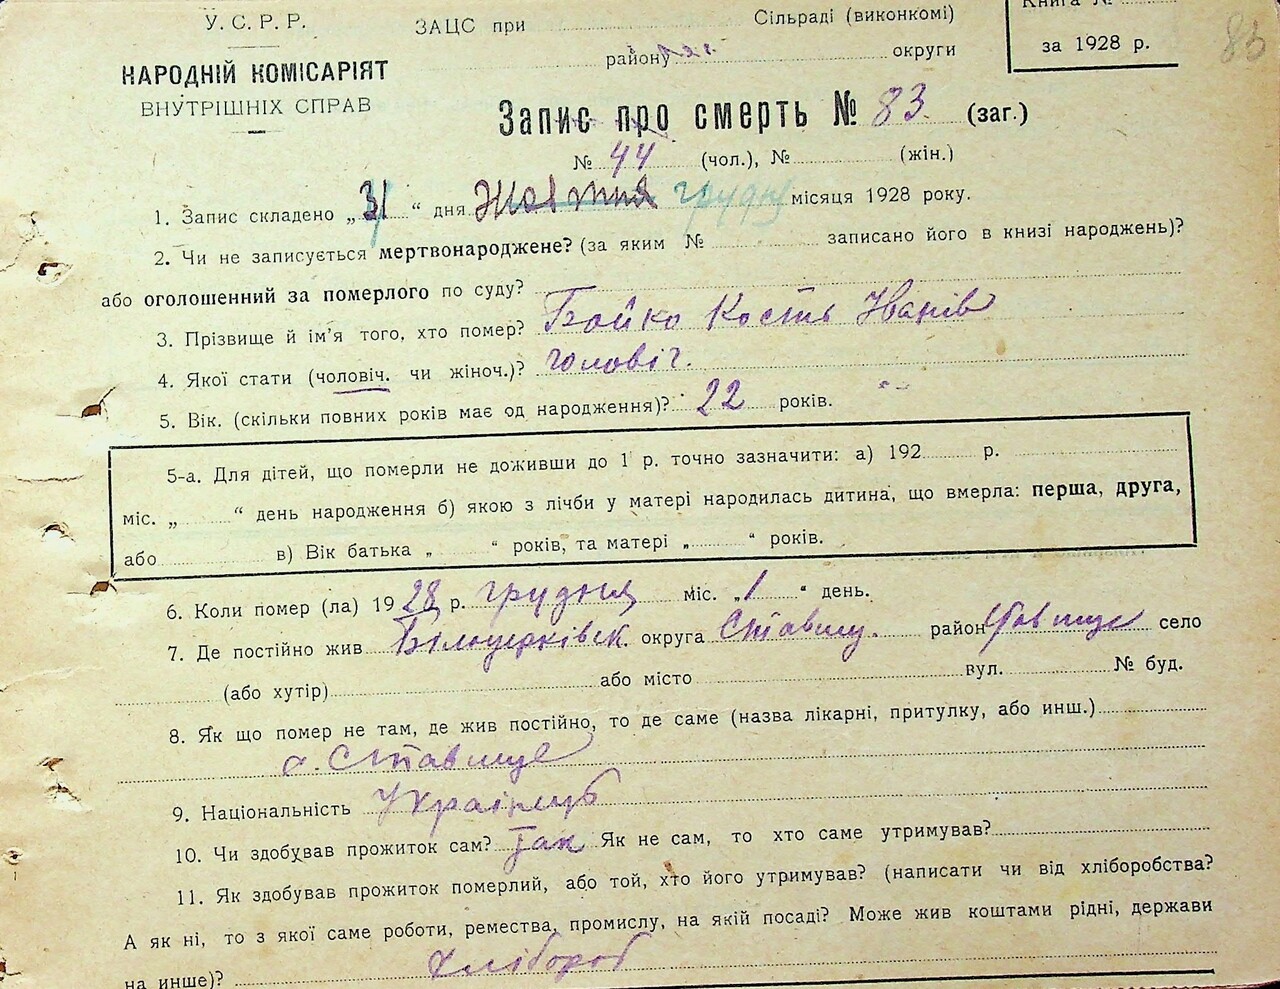 У. С. Р. Р.
НАРОДНІЙ КОМІСАРІЯТ
ВНУТРІШНІХ СПРАВ
ЗАЦС при Сільраді (виконкомі)
району округи
Книга №
за 1928 р.
83
Запис про смерть № 83. (заг.)
№ 44 (чол.), № (жін.)
1. Запис складено „31“ дня Жовтня грудня місяця 1928 року.
2. Чи не записується мертвонароджене? (за яким № записано його в книзі народжень)?
або оголошенний за померлого по суду?
3. Прізвище й ім'я того, хто помер? Бойко Кость Іванів
4. Якої стати (чоловіч. чи жіноч.)? чоловіч.
5. Вік. (скільки повних років має од народження)? 22 років.
5-а. Для дітей, що померли не доживши до 1 р. точно зазначити: а) 192 р.
міс. „ “ день народження б) якою з лічби у матері народилась дитина, що вмерла: перша, друга,
або в) Вік батька „ “ років, та матері „ “ років.
6. Коли помер (ла) 1928 р. грудня міс. „1“ день.
7. Де постійно жив Білоцерківск. округа Ставищ. район Ставище село
(або хутір) або місто вул. № буд.
8. Як що помер не там, де жив постійно, то де саме (назва лікарні, притулку, або инш.)
с. Ставище
9. Національність Українець
10. Чи здобував прожиток сам? Так Як не сам, то хто саме утримував?
11. Як здобував прожиток померлий, або той, хто його утримував? (написати чи від хліборобства?
А як ні, то з якої саме роботи, ремества, промислу, на якій посаді? Може жив коштами рідні, держави
на инше)? Хлібороб